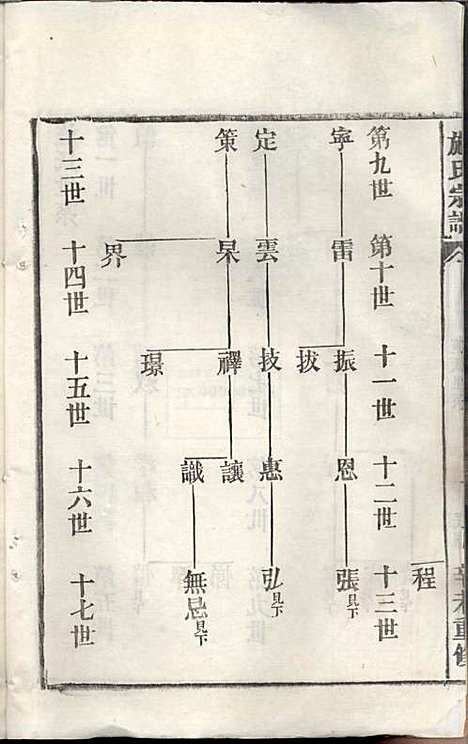 施氏宗譜
辛未重修
程
第九世 第十世 十一世 十二世 十三世
寧 雷 振 恩 張見下
拔
定 雲 技 惠 弘見下
策 杲 禪 讓
識 無忌見下
璟
界
十三世 十四世 十五世 十六世 十七世